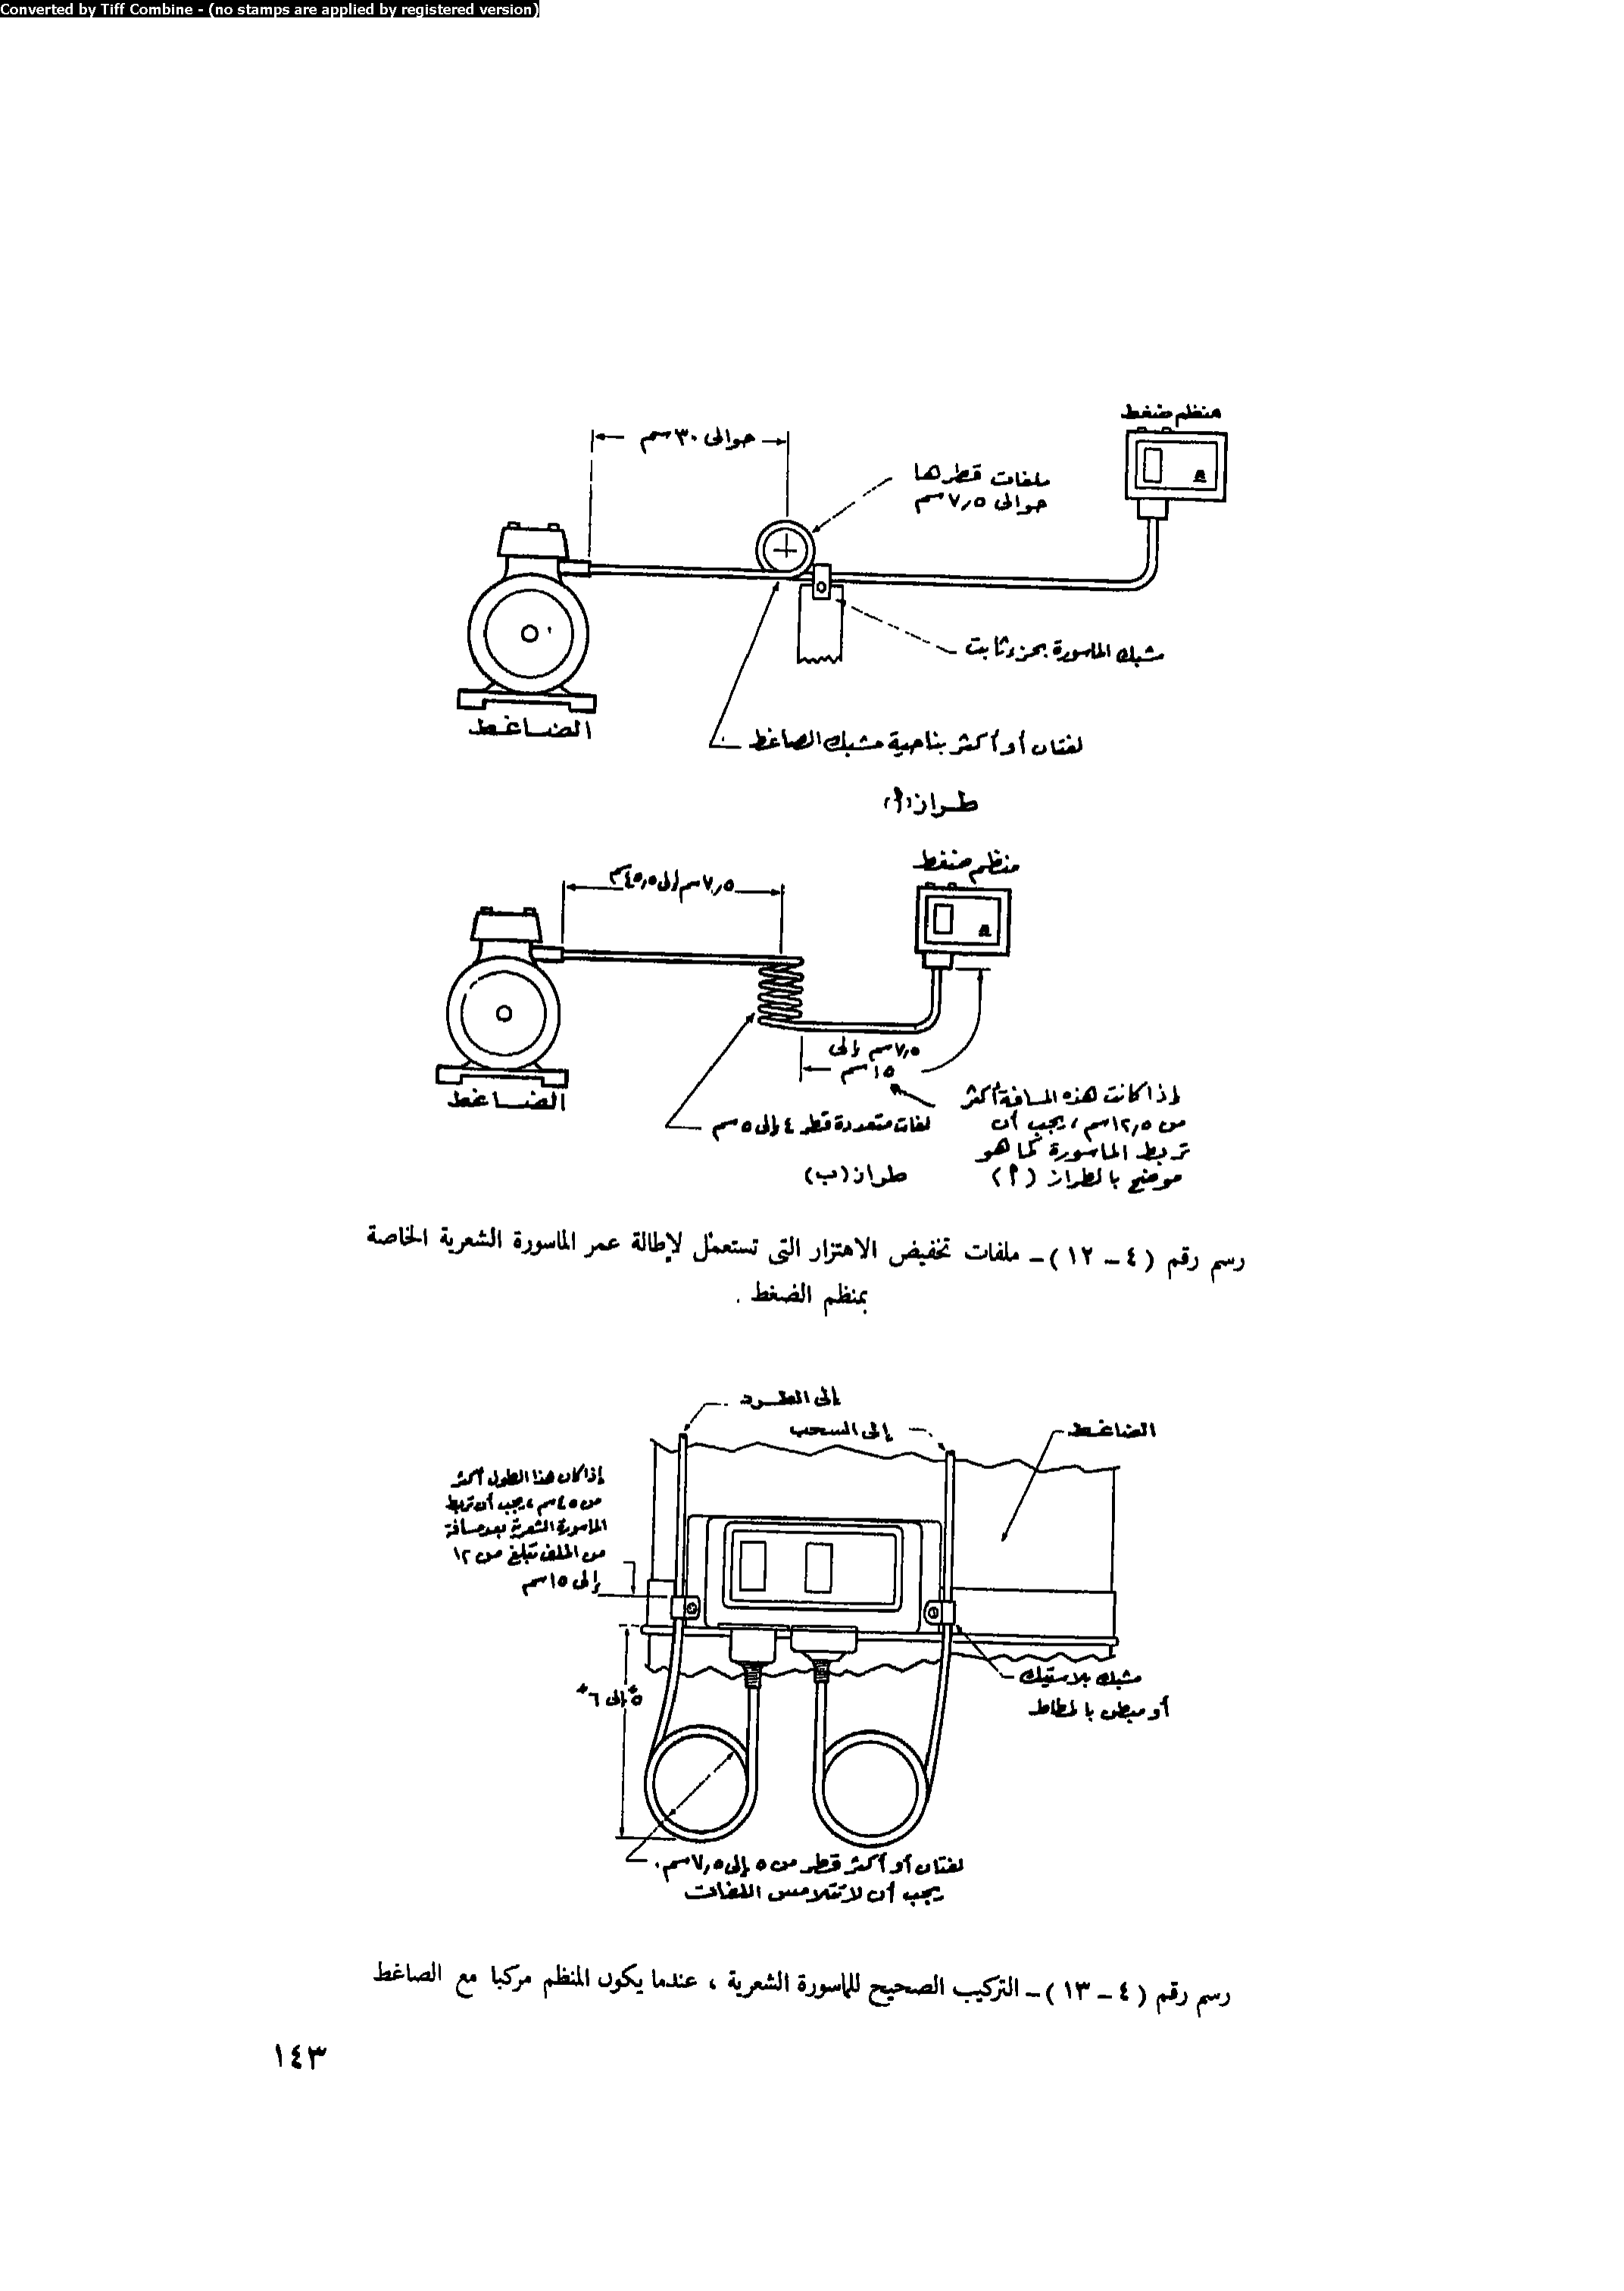 Converted by Tiff Combine - (no stamps are applied by registered version)
منظم ضغط
حوالى ٣٠ سم
ملفات قطرها
حوالى ٧٫٥ سم
مشبك الماسورة بجزء ثابت
الضاغط
لفتان أو أكثر بناحية مشبك الضاغط
طراز (أ)
منظم ضغط
٧٫٥ سم إلى ٤٥٫٥ سم
٧٫٥ سم إلى
١٥ سم
الضاغط
إذا كانت هذه المسافة أكثر
من ١٢٫٥ سم ، يجب أن
تربط الماسورة كما هو
موضح بالطراز (أ)
لفات متعددة قطر ٤ إلى ٥ سم
طراز (ب)
رسم رقم ( ٤ – ١٢ ) – ملفات تخفيض الاهتزاز التى تستعمل لإطالة عمر الماسورة الشعرية الخاصة
بمنظم الضغط .
إلى الطرد
إلى السحب
الضاغط
إذا كان هذا الطول أكثر
من ٤٥ سم ، يجب أن تربط
الماسورة الشعرية بعد مسافة
من الملف تبلغ من ١٢
إلى ١٥ سم
مشبك بلاستيك
أو مبطن بالمطاط
٥ً إلى ٦ً
لفتان أو أكثر قطر من ٥ إلى ٧٫٥ سم .
يجب أن لا تتلامس اللفات
رسم رقم ( ٤ – ١٣ ) – التركيب الصحيح للماسورة الشعرية ، عندما يكون المنظم مركبا مع الضاغط
١٤٣